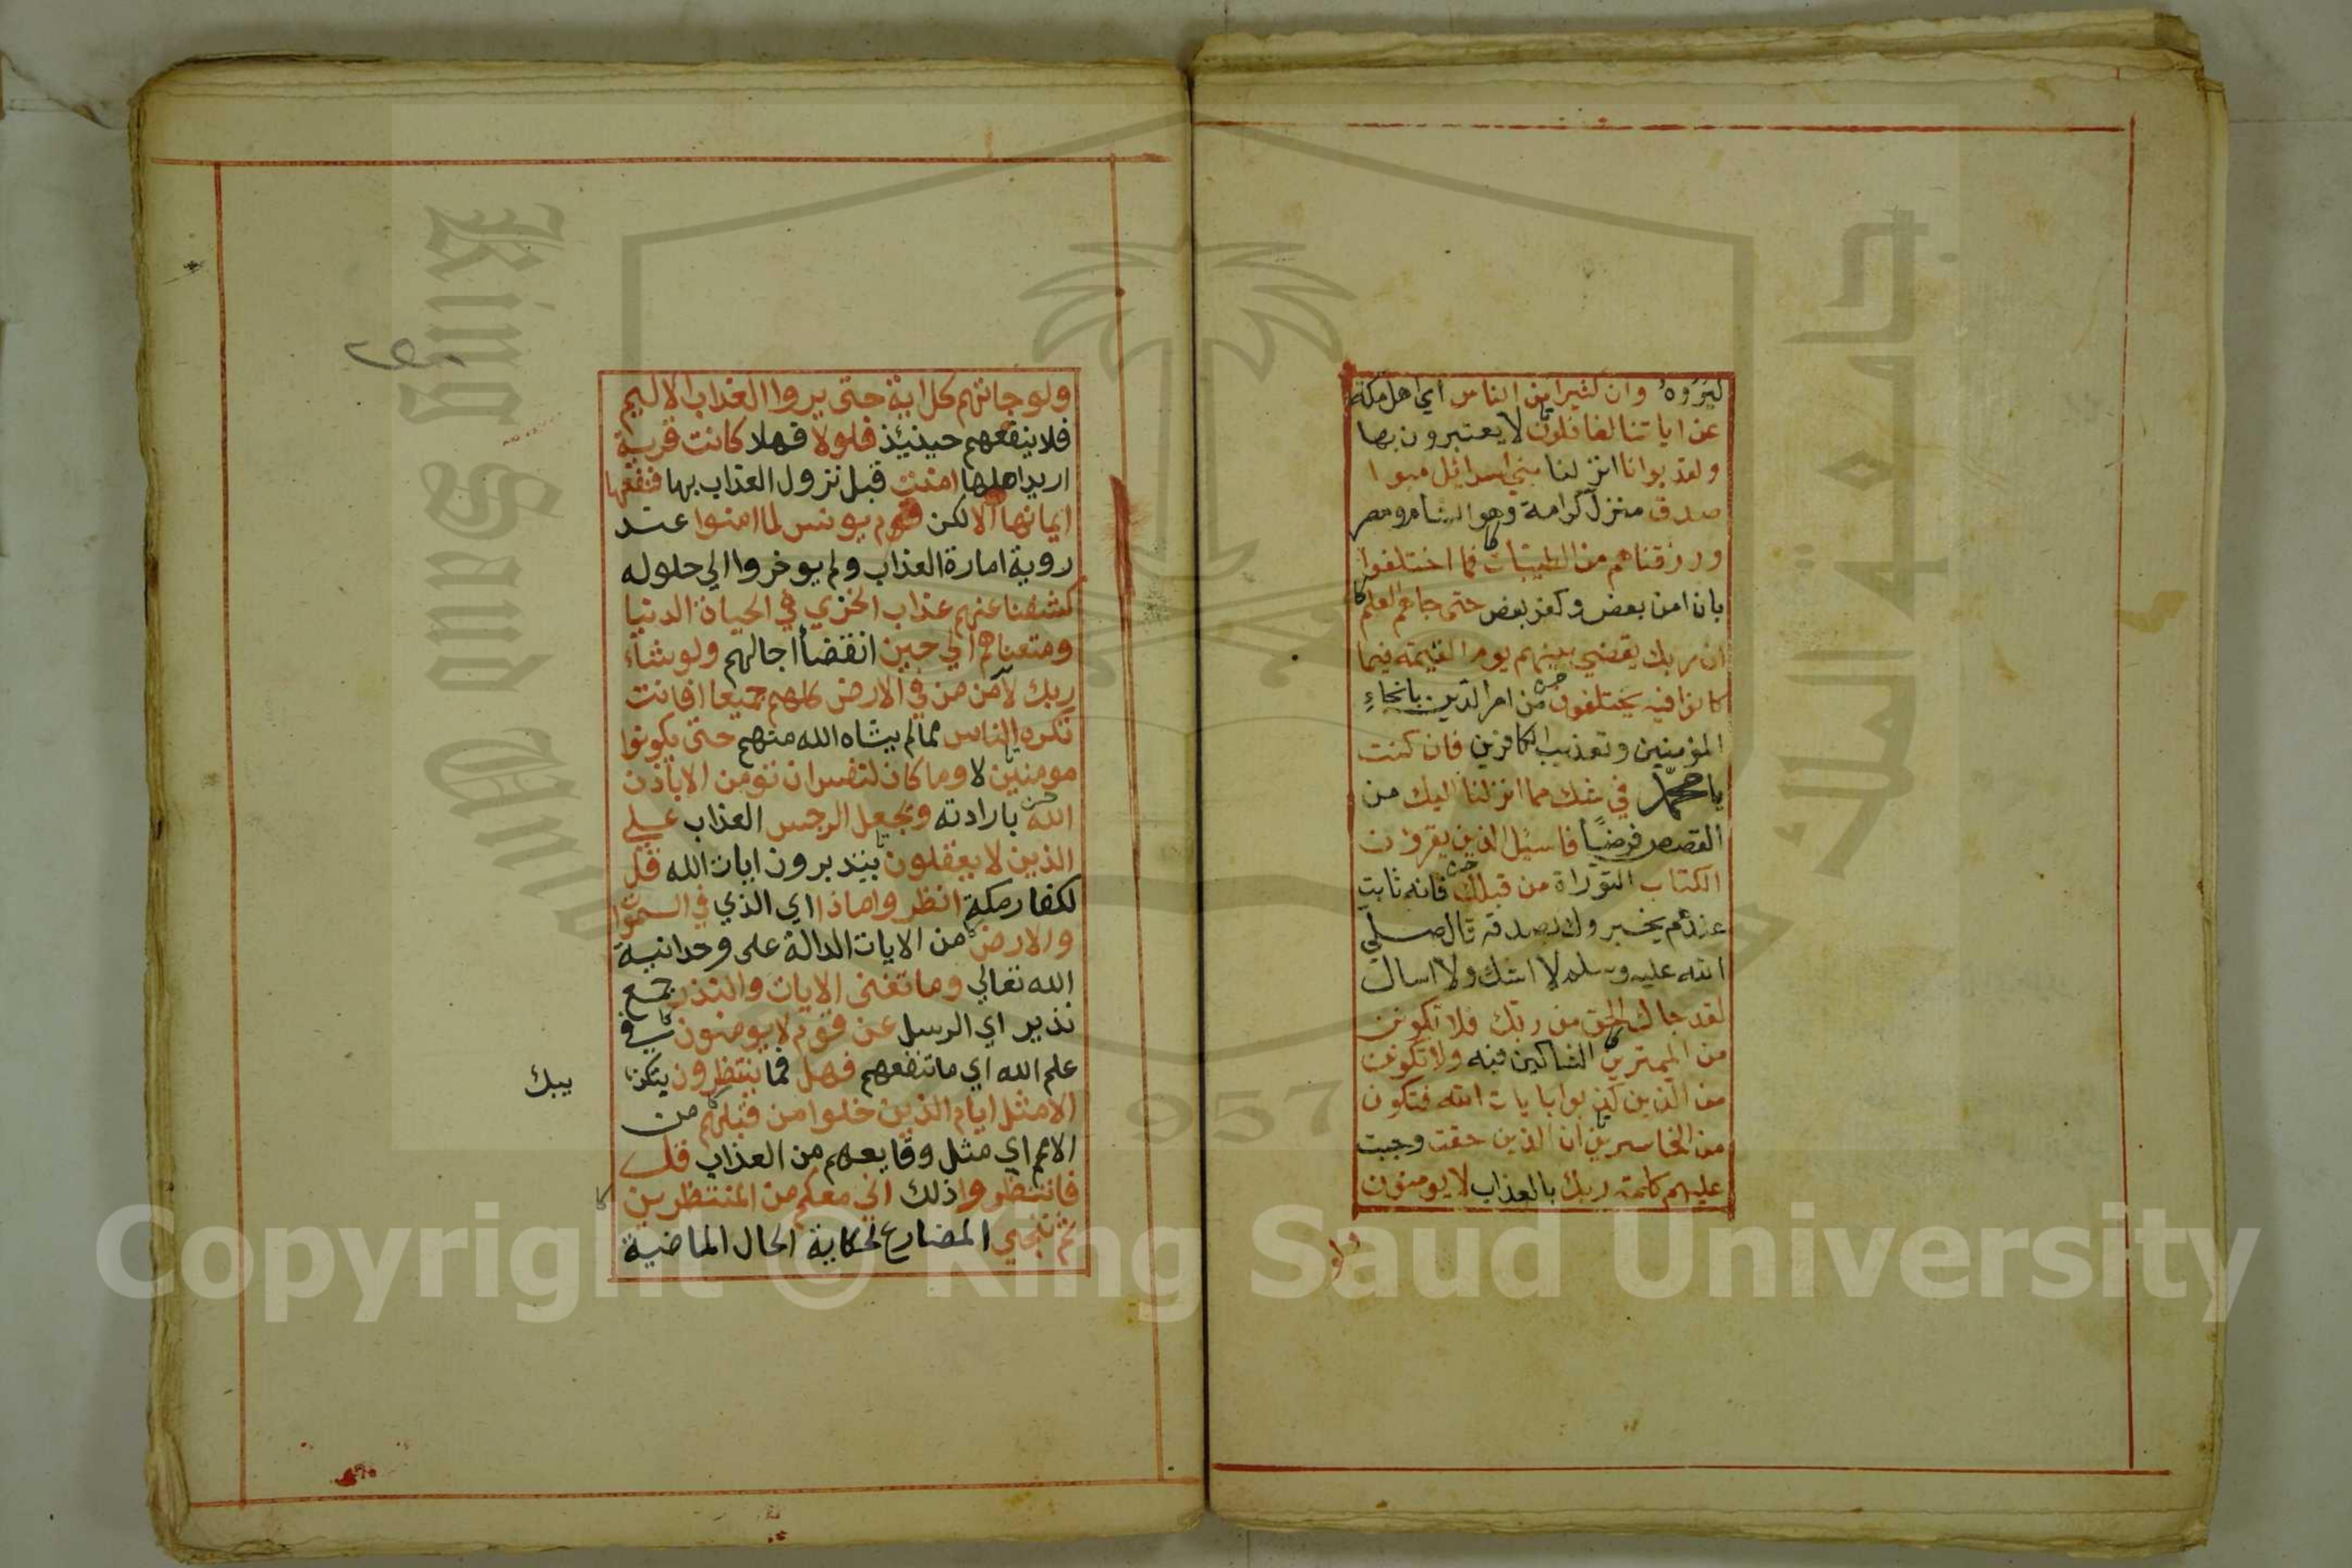 ليروه وان كثيرا من الناس اي اهل مكة
عن اياتنا لغافلون لا يعتبرون بها
ولقد بوانا انزلنا بني اسرائيل مبوا
صدق منزل كرامة وهو الشام ومصر
ورزقناهم من الطيبات فما اختلفوا
بان امن بعض وكفر بعض حتى جاهم العلم
ان ربك يقضي بينهم يوم القيمة فيما
كانوا فيه يختلفون من امر الدين بانجاء
المؤمنين وتعذيب الكافرين فان كنت
يا محمد في شك مما انزلنا اليك من
القصص فرضا فاسئل الذين يقرؤن
الكتاب التوراة من قبلك فانه ثابت
عندهم يخبروك بصدقه قال صلى
الله عليه وسلم لا اشك ولا اسال
لقد جاك الحق من ربك فلا تكونن
من الممترين الشاكين فيه ولا تكونن
من الذين كذبوا بايات الله فتكون
من الخاسرين ان الذين حقت وجبت
عليهم كلمة ربك بالعذاب لا يومنون
ولو
ولو جاتهم كل اية حتى يروا العذاب الاليم
فلا ينفعهم حينئذ فلولا فهلا كانت قرية
اريد اهلها امنت قبل نزول العذاب بها فنفعها
ايمانها الا لكن قوم يونس لما امنوا عند
روية امارة العذاب ولم يوخروا الي حلوله
كشفنا عنهم عذاب الخزي في الحياة الدنيا
ومتعناهم الي حين انقضا اجالهم ولو شاء
ربك لامن من في الارض كلهم جميعا افانت
تكره الناس مما لم يشاه الله منهم حتى يكونوا
مومنين لا وما كان لنفس ان تومن الا باذن
الله بارادته ويجعل الرجس العذاب علي
الذين لا يعقلون يتدبرون ايات الله قل
لكفار مكة انظروا ماذا اي الذي في السموات
والارض من الايات الدالة على وحدانية
الله تعالي وما تغني الايات والنذر جمع
نذير اي الرسل عن قوم لا يومنون في
علم الله اي ما تنفعهم فهل فما ينتظرون
يبك
الا مثل ايام الذين خلوا من قبلهم من
الامم اي مثل وقايعهم من العذاب قل
فانتظروا ذلك اني معكم من المنتظرين
ثم ننجي المضارع لحكاية الحال الماضية
King Saud University
جامعة الملك
957
Copyright © King Saud University